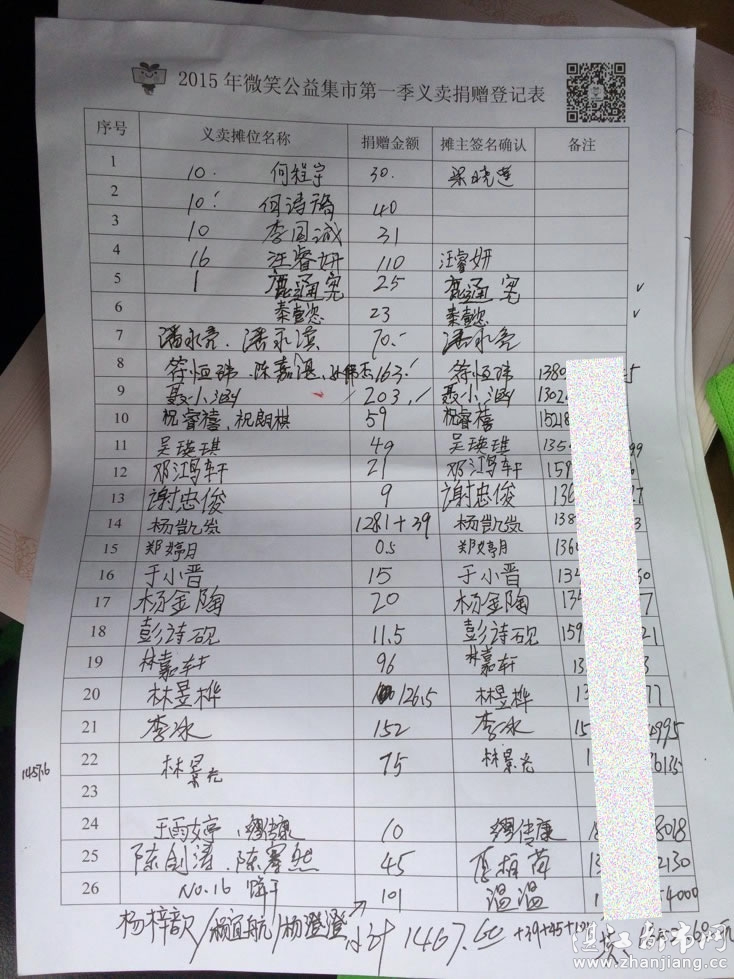 2015年微笑公益集市第一季义卖捐赠登记表
序号 义卖摊位名称 捐赠金额 摊主签名确认 备注
1 10. 何程宇 30. 梁晓莲
2 10. 何诗琦 40
3 10 李国诚 31
4 16 汪睿妍 110 汪睿妍
5 1 鹿通宪 25 鹿通宪 √
6 秦懿您 23 秦懿您 √
7 潘永亮、潘永滨 70.- 潘永亮
8 符恒玮、陈嘉湛、 163. 符恒玮 1380 5
9 聂小涵 203. 聂小涵 1302
10 祝睿禧,祝朗棋 59 祝睿禧 15218
11 吴瑛琪 49 吴瑛琪 135 99
12 邓鸿轩 21 邓鸿轩 159
13 谢忠俊 9 谢忠俊 136 7
14 杨凯岚 1281+39 杨凯岚 138 3
15 郑婷月 0.5 郑婷月 136
16 于小晋 15 于小晋 134 30
17 杨金陶 20 杨金陶 134 7
18 彭诗砚 11.5 彭诗砚 159 21
19 林嘉轩 96 林嘉轩 13 3
20 林昱桦 126.5 林昱桦 13 77
21 李冰 152 李冰 15 4995
22 林景光 75 林景光 1 6135
1457.6
23
24 王雨婷、缪传康 10 缪传康 18 8018
25 陈剑涛、陈睿然 45 13 2130
26 No.16 饼干 101 温温 1 54000
杨梓歆/赖宜航/杨澄澄 小计 1467. +39+45+101
湛江都市网
www.zhanjiang.cc